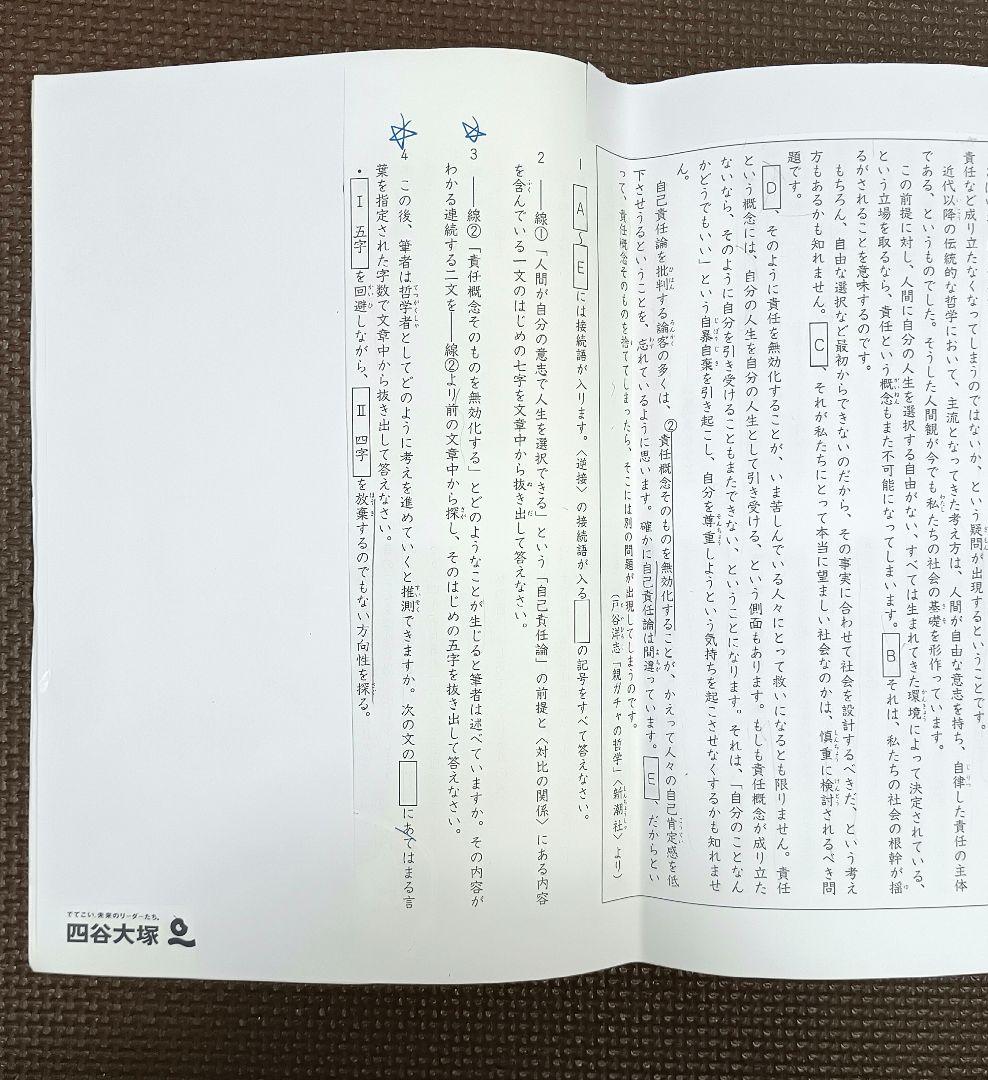 責任など成り立たなくなってしまうのではないか、という疑問が出現するということです。
近代以降の伝統的な哲学において、主流となってきた考え方は、人間が自由な意志を持ち、自律した責任の主体
である、というものでした。そうした人間観が今でも私たちの社会の基礎を形作っています。
この前提に対し、人間に自分の人生を選択する自由がない、すべては生まれてきた環境によって決定されている、
という立場を取るなら、責任という概念もまた不可能になってしまいます。 B それは、私たちの社会の根幹が揺
るがされることを意味するのです。
もちろん、自由な選択など最初からできないのだから、その事実に合わせて社会を設計するべきだ、という考え
方もあるかも知れません。 C 、それが私たちにとって本当に望ましい社会なのかは、慎重に検討されるべき問
題です。
D 、そのように責任を無効化することが、いま苦しんでいる人々にとって救いになるとも限りません。責任
という概念には、自分の人生を自分の人生として引き受ける、という側面もあります。もしも責任概念が成り立た
ないなら、そのように自分を引き受けることもまたできない、ということになります。それは、「自分のことなん
かどうでもいい」という自暴自棄を引き起こし、自分を尊重しようという気持ちを起こさせなくするかも知れませ
ん。
自己責任論を批判する論客の多くは、②責任概念そのものを無効化することが、かえって人々の自己肯定感を低
下させうるということを、忘れているように思います。確かに自己責任論は間違っています。 E 、だからとい
って、責任概念そのものを捨ててしまったら、そこには別の問題が出現してしまうのです。
(戸谷洋志「親ガチャの哲学」〈新潮社〉より)
1 A〜E には接続語が入ります。〈逆接〉の接続語が入る の記号をすべて答えなさい。
2 ――線①「人間が自分の意志で人生を選択できる」という「自己責任論」の前提と〈対比の関係〉にある内容
を含んでいる一文のはじめの七字を文章中から抜き出して答えなさい。
3 ――線②「責任概念そのものを無効化する」とどのようなことが生じると筆者は述べていますか。その内容が
わかる連続する二文を――線②より前の文章中から探し、そのはじめの五字を抜き出して答えなさい。
4 この後、筆者は哲学者としてどのように考えを進めていくと推測できますか。次の文の にあてはまる言
葉を指定された字数で文章中から抜き出して答えなさい。
・ Ⅰ 五字 を回避しながら、 Ⅱ 四字 を放棄するのでもない方向性を探る。
でてこい、未来のリーダーたち。
四谷大塚